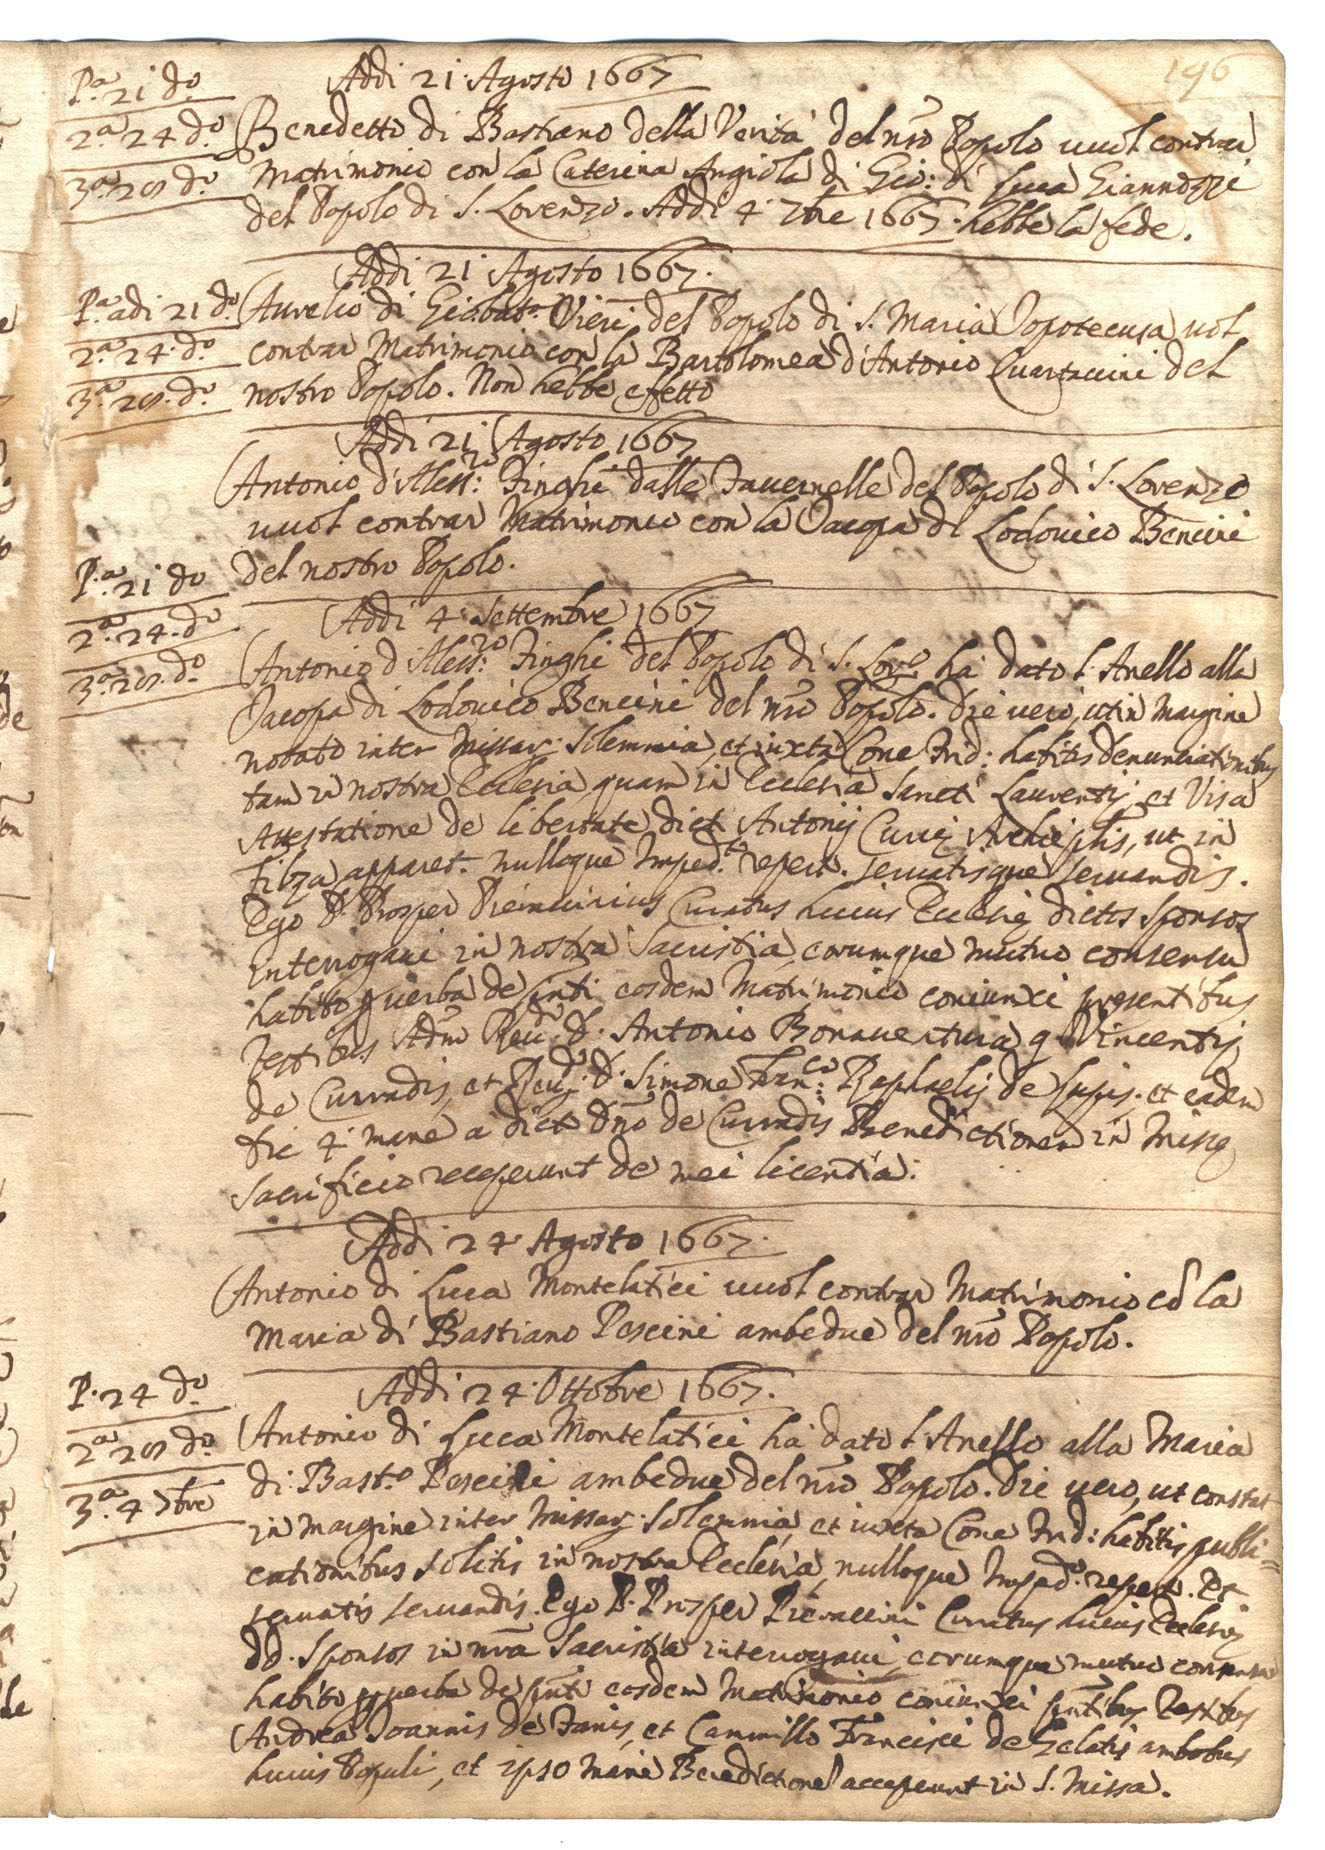 196
Addi 21 Agosto 1667
P.a 21 do
2.a 24 do
3.a 28 do
Benedetto di Bastiano della Verità del nro Popolo vuol contrar
Matrimonio con la Caterina Angiola di Gio: di Luca Giannozzi
del Popolo di S. Lorenzo. Addi 4 7bre 1667 hebbe la fede.
Addi 21 Agosto 1667.
P.a adi 21 do
2.a 24 do
3.a 28 do
Aurelio di Giobatt.a Vieri del Popolo di S. Maria vol
contrar Matrimonio con la Bartolomea d'Antonio Quartucini del
nostro Popolo. Non hebbe effetto
Addi 21 Agosto 1667
Antonio d'Aless:ro Finghi dalle Tavernelle del Popolo di S. Lorenzo
vuol contrar Matrimonio con la Jacopa di Lodovico Bencini
del nostro Popolo.
P.a 21 do
2.a 24 do
3.a 28 do
Addi 4 Settembre 1667
Antonio d'Aless:ro Finghi del Popolo di S. Lor.o ha dato l'Anello alla
Jacopa di Lodovico Bencini del nro Popolo. Die vero, ut in margine
notato inter Missar. Solemnia, et iuxta Conc Trid: habitis denunciationibus
tam in nostra Ecclesia quam in Ecclesia Sancti Laurentij, et Visa
Attestatione de libertate dict Antonij Curię Archieplis, ut in
filza apparet. nulloque Imped.to repert. servatisque servandis.
Ego P. Prosper Curatus huius Ecclesię dictos Sponsos
interrogavi in nostra Sacristia, eorumque mutuo consensu
habito p verba de pnti eosdem Matrimonio coniunxi presentibus
Testibus Adm Reu.do D. Antonio Bonaventura q Vincentij
de Curradis, et Reu.do D. Simone Fran:co Raphaelis de Lupis. et eadem
die 4 mane a dict Dno de Curradis Benedictionem in Missę
Sacrificio receperunt de mei licentia.
Addi 24 Agosto 1667.
Antonio di Luca Montelatici vuol contrar Matrimonio cõ la
Maria di Bastiano Pescini ambedue del nro Popolo.
P. 24 do
2.a 28 do
3.a 4 7bre
Addi 24 Ottobre 1667.
Antonio di Luca Montelatici ha dato l'Anello alla Maria
di Bast.o Pescini ambedue del nro Popolo. Die vero, ut constat
in margine inter Missar. Solemnia, et iuxta Conc Trid: habitis publi=
cationibus solitis in nostra Ecclesia, nulloque Imped.o repert. Et
servatis servandis. Ego P. Prosper Curatus huius Ecclesię
DD. Sponsos in nra Sacristia interrogavi, eorumque mutuo consensu
habito p verba de pnti eosdem Matrimonio coniunxi pntibus Testibus
Andrea Joannis de Fanis, et Cammillo Francisci de Zelatis ambobus
huius Populi, et ipso mane Benedictione acceperunt in S. Missa.